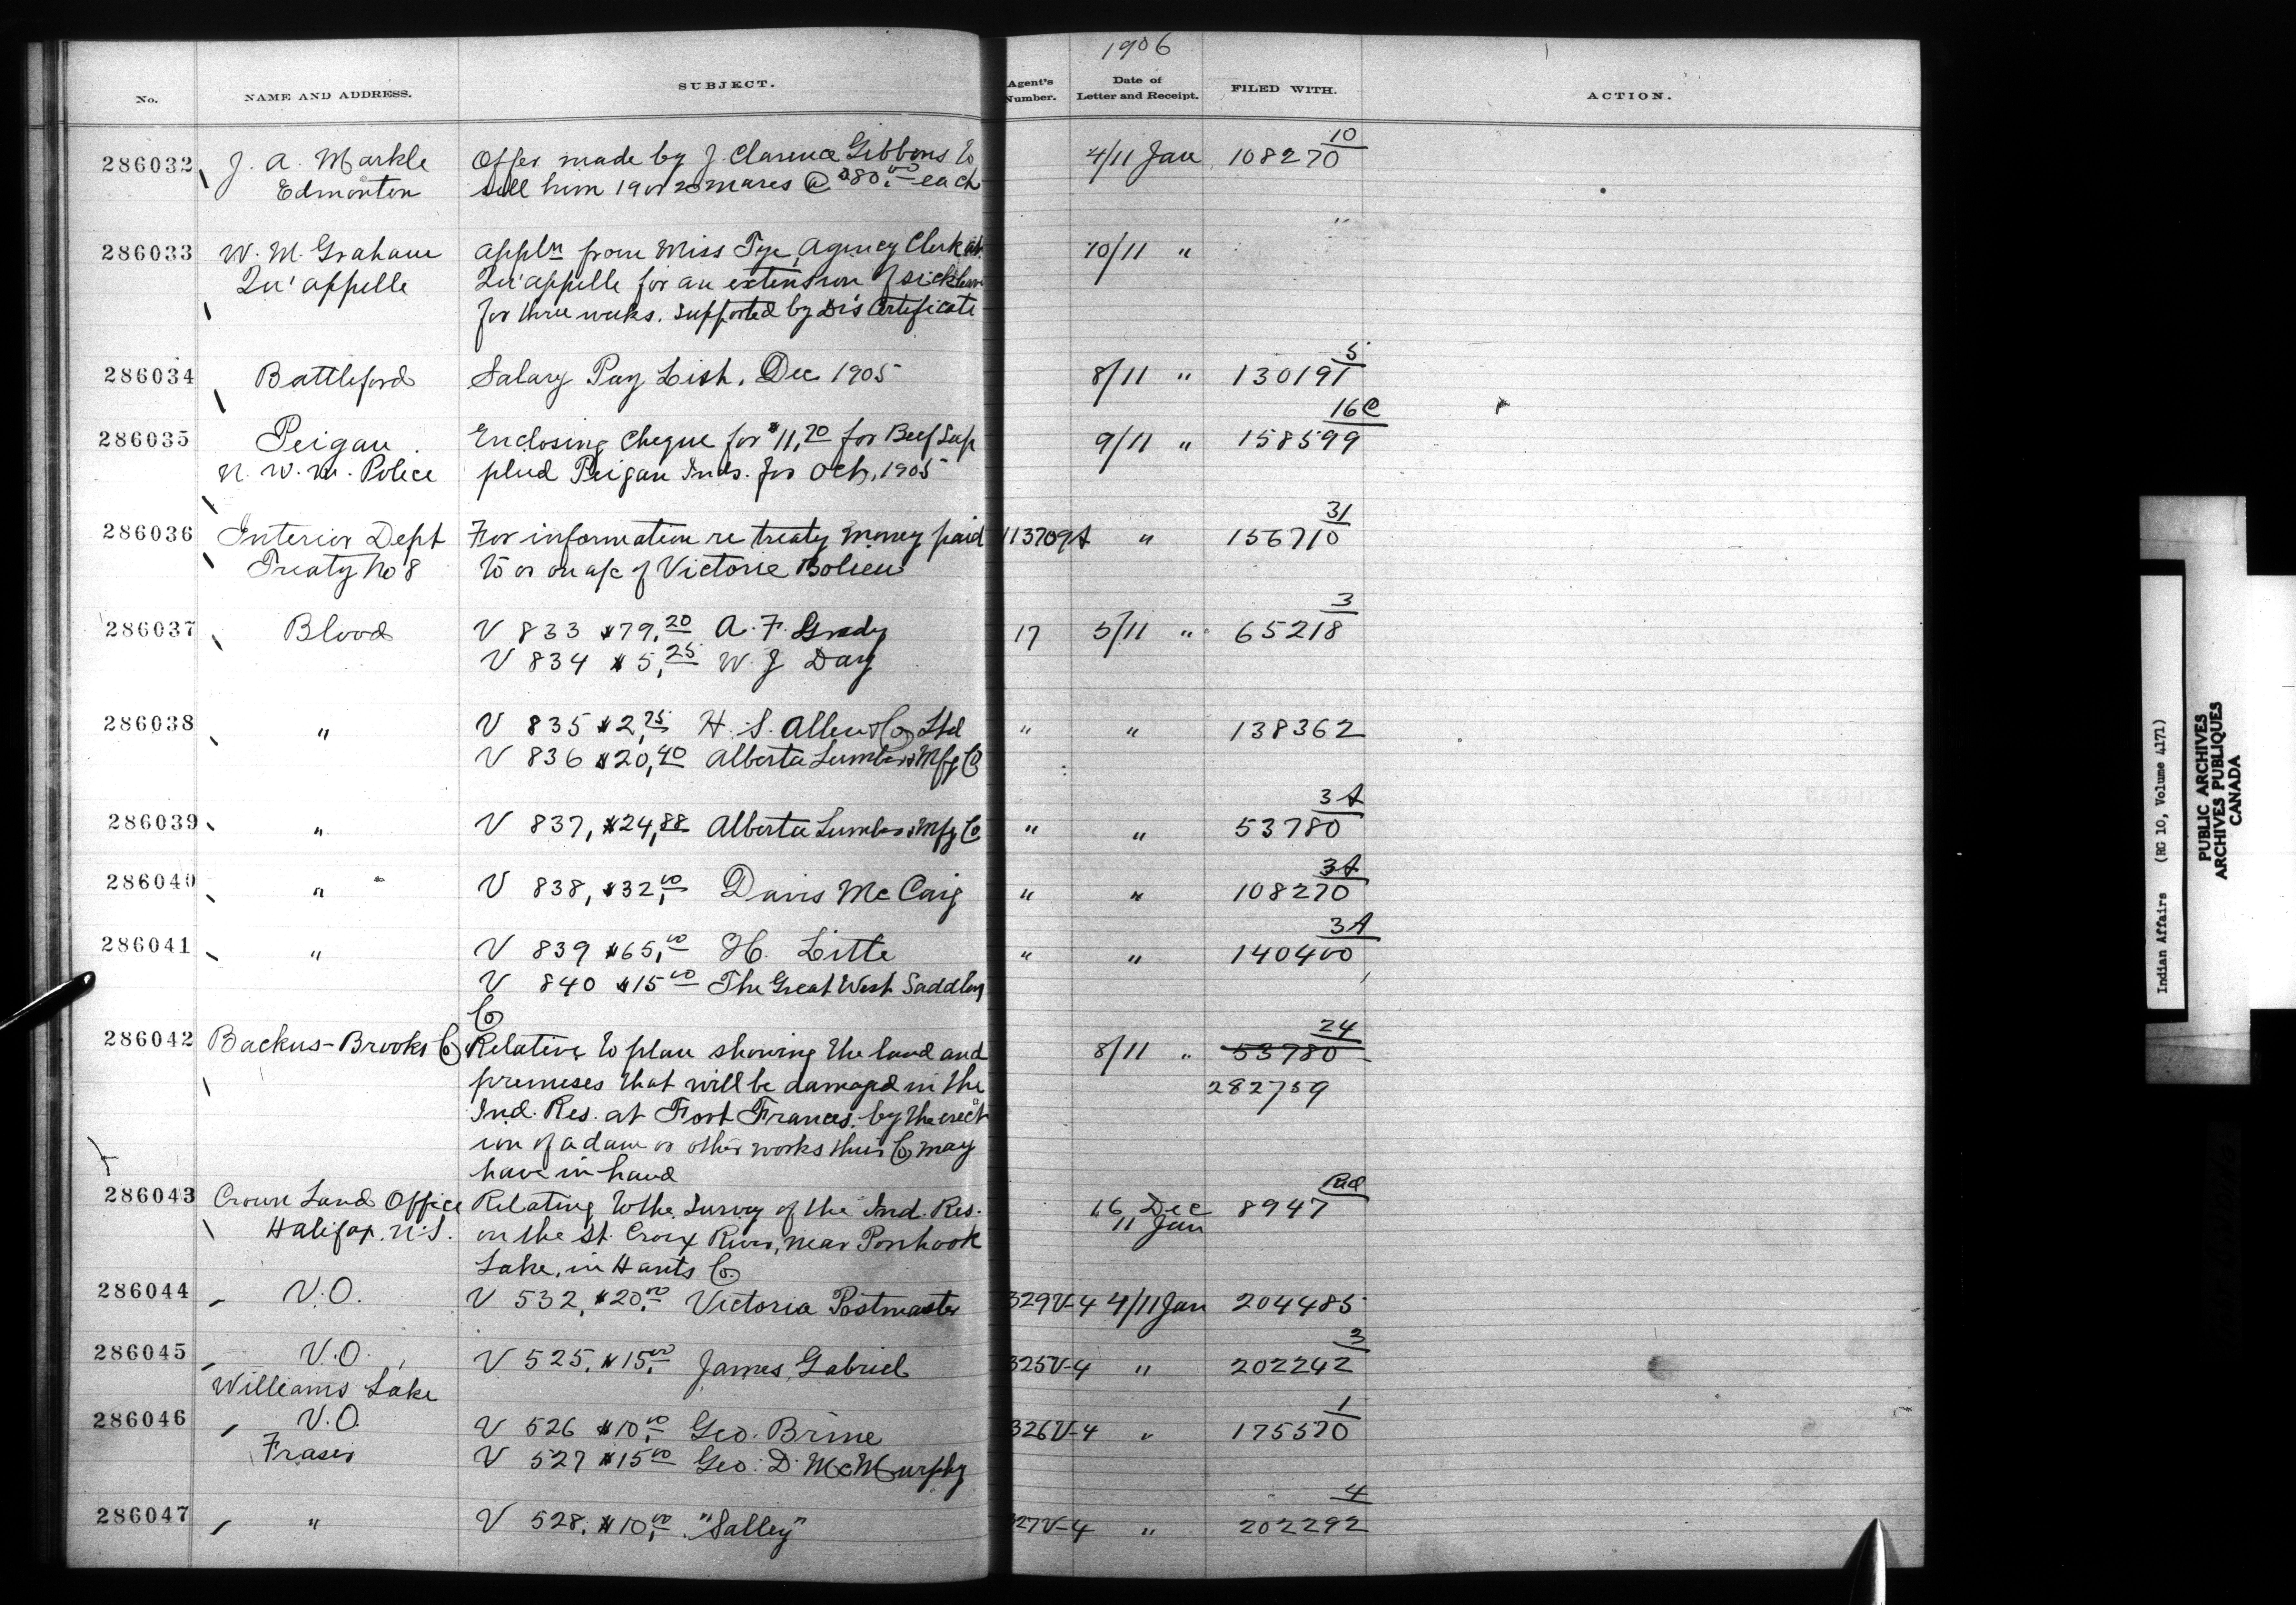 1906
No. NAME AND ADDRESS. SUBJECT. Agent's Number. Date of Letter and Receipt. FILED WITH. ACTION.
10
286032 J. A. Markle Offer made by J. Clarence Gibbons to 4/11 Jan 108270
Edmonton sell him 19 or 20 mares @ $80.00 each
"
286033 W. M. Graham appln from Miss Tye, Agency Clerk at 10/11 "
Qu'appelle Qu'appelle for an extension of sick leave
for three weeks. Supported by Dr's Certificate
5
286034 Battleford Salary Pay List. Dec 1905 8/11 " 130191
16C
286035 Peigan Enclosing Cheque for $11,20 for Beef Sup 9/11 " 158599
N. W. M. Police plied Peigan Inds. for Oct, 1905
31
286036 Interior Dept For information re treaty money paid 113709A " 156710
Treaty No 8 to or on a/c of Victorie Bolieu
3
286037 Blood V 833 $79,20 A. F. Grady 17 5/11 " 65218
V 834 $5,25 W. J Day
286038 " V 835 $2,75 H. S. Allen & Co Ltd " " 138362
V 836 $20,40 Alberta Lumber & Mfg Co
3A
286039 " V 837, $24,88 Alberta Lumber & Mfg Co " " 53780
3A
286040 " V 838, $32,00 Davis McCaig " " 108270
3A
286041 " V 839 $65,00 H. Litte " " 140400
V 840 $15 00 The Great West Saddlery
Co
24
286042 Backus-Brooks Co Relative to plan showing the land and 8/11 " 53780
premises that will be damaged in the 282759
Ind. Res. at Fort Frances, by the erect
ion of a dam or other works this Co may
have in hand
Red
286043 Crown Land Office Relating to the Survey of the Ind. Res. 16 Dec 8947
Halifax. N.S. on the St. Croix River, near Ponhook 11 Jan
Lake, in Hants Co.
286044 V.O. V 532, $20.00 Victoria Postmaster 329V-4 4/11 Jan 204485
3
286045 V.O. V 525, $15,00 James Gabriel 325V-4 " 202242
Williams Lake
1
286046 V.O. V 526 $10,00 Geo. Brine 326V-4 " 175570
Fraser V 527 $15 00 Geo. D. McMurphy
4
286047 " V 528, $10,00 "Salley" 327V-4 " 202292
Indian Affairs (RG 10, Volume 4171)
PUBLIC ARCHIVES
ARCHIVES PUBLIQUES
CANADA